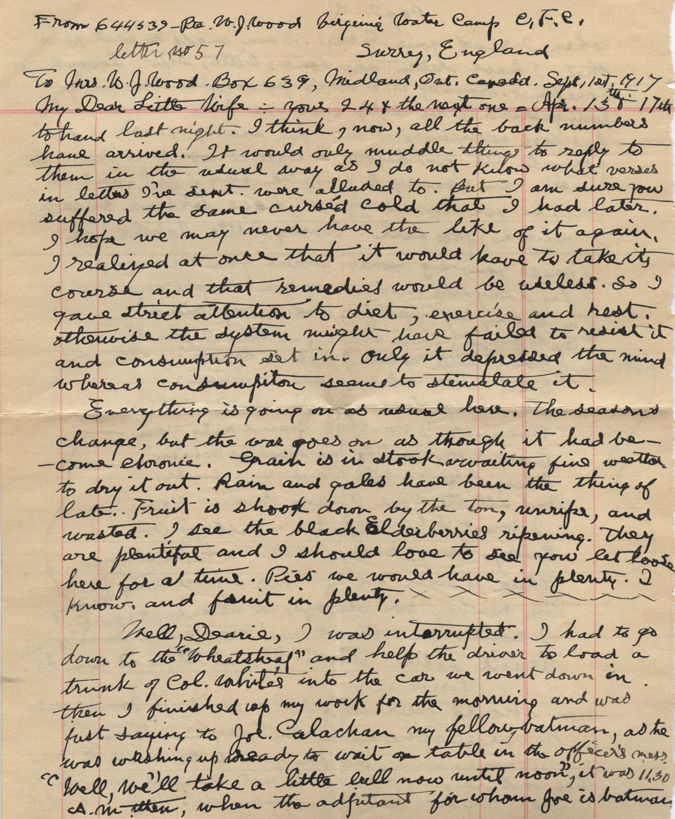 From 644539 - Pte. W. J. Wood Virginia Water Camp C. F. C.
letter no 57 Surrey, England
To Mrs. W. J. Wood. Box 639, Midland, Ont. Canada. Sept, 1st, 1917
My Dear Little Wife :- yours 24 & the next one = Apr. 13th & 17th
to hand last night. I think, now, all the back numbers
have arrived. It would only muddle things to reply to
them in the usual way as I do not know what verses
in letters I've sent were alluded to. But I am sure you
suffered the same cursed cold that I had later.
I hope we may never have the like of it again.
I realized at once that it would have to take its
course and that remedies would be useless. So I
gave strict attention to diet, exercise and rest.
otherwise the system might have failed to resist it
and consumption set in. Only it depressed the mind
whereas consumpiton seems to stimulate it.
Everything is going on as usual here. The seasons
change, but the war goes on as though it had be-
-come chronic. Grain is in stook awaiting fine weather
to dry it out. Rain and gales have been the thing of
late. Fruit is shook down by the ton, unripe, and
wasted. I see the black Elderberries ripening. They
are plentiful and I should love to see you let loose
here for a time. Pies we would have in plenty. I
know. and fruit in plenty. x x x x x x x
Well, Dearie, I was interrupted. I had to go
down to the "Wheatsheaf" and help the driver to load a
trunk of Col. White's into the car we went down in.
then I finished up my work for the morning and was
just saying to Joe. Calachan my fellow batman, as he
was washing up ready to wait on table in the officer's mess.
"Well, we'll take a little lull now until noon", it was 11.30
a.m. then, when the adjutant for whom Joe is batman